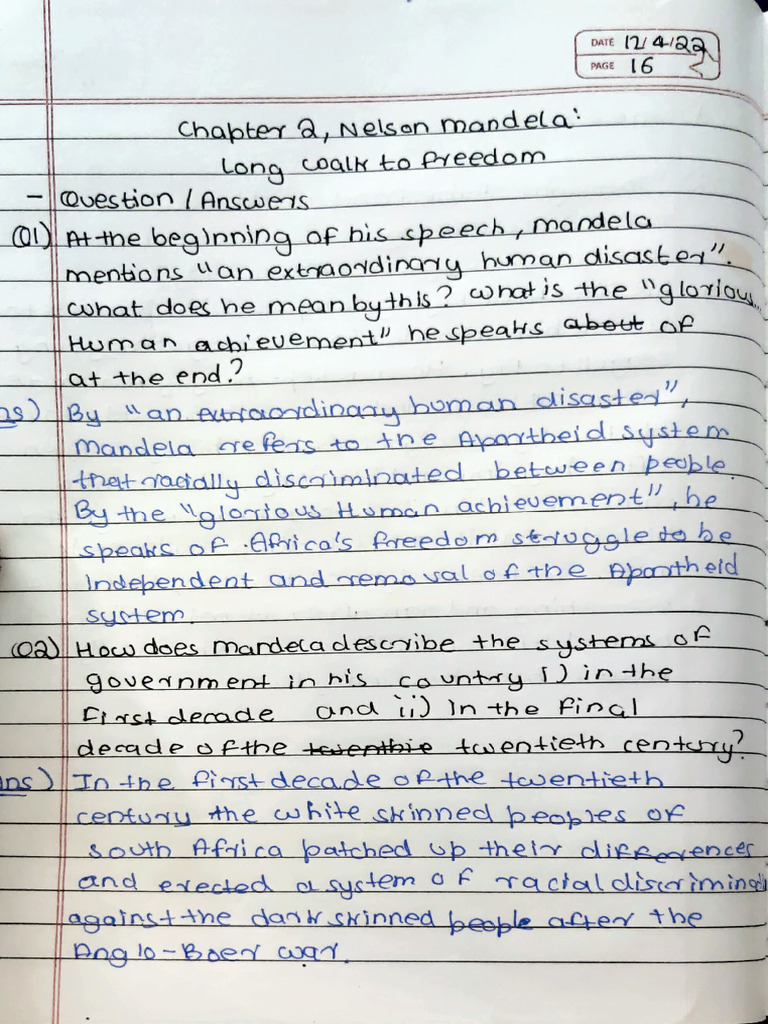 DATE 12/4/22
PAGE 16
Chapter 2, Nelson Mandela:
Long Walk to Freedom
- Question / Answers
Q1) At the beginning of his speech, Mandela
mentions "an extraordinary human disaster".
What does he mean by this? What is the "glorious
Human achievement" he speaks about of
at the end?
ns) By "an extraordinary human disaster",
Mandela refers to the Apartheid system
that racially discriminated between people.
By the "glorious Human achievement", he
speaks of Africa's freedom struggle to be
independent and removal of the Apartheid
system.
Q2) How does Mandela describe the systems of
government in his country i) in the
First decade and ii) In the Final
decade of the twenthie twentieth century?
ns) In the first decade of the twentieth
century the white skinned peoples of
South Africa patched up their differences
and erected a system of racial discrimina
against the dark skinned people after the
Anglo-Boer war.